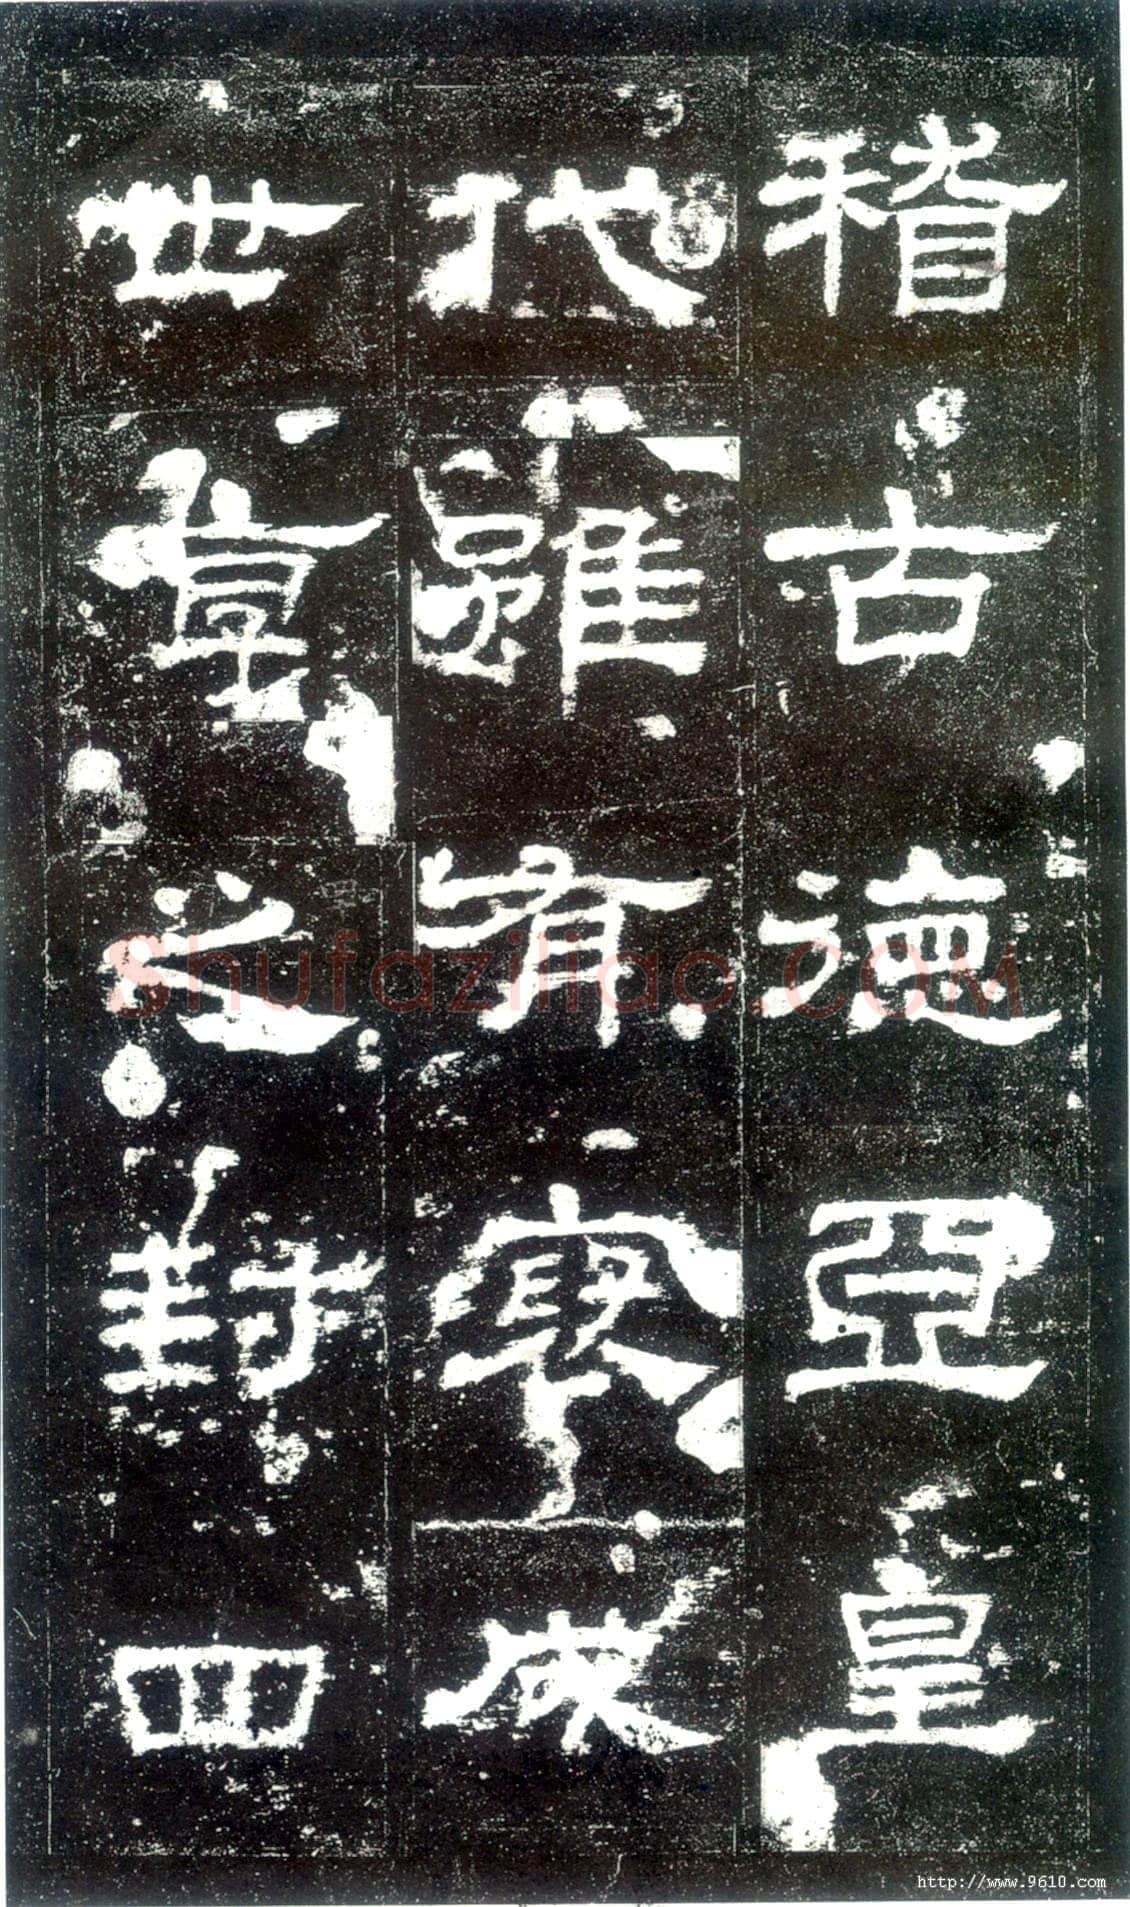 稽古德亞皇
代雖有褒成
世享之封四
Shufaziliao.COM
http://www.9610.com